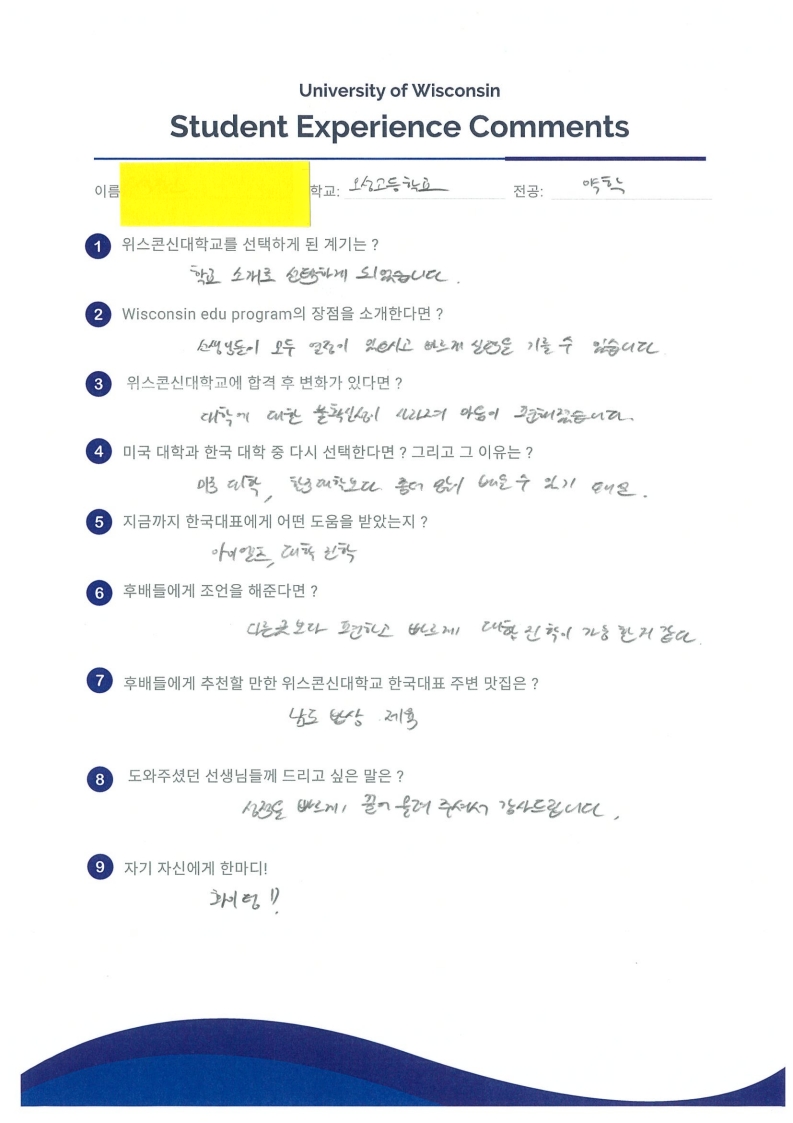 University of Wisconsin
Student Experience Comments
이름 학교: 오성고등학교 전공: 약학
1 위스콘신대학교를 선택하게 된 계기는 ?
학교 소개로 선택하게 되었습니다.
2 Wisconsin edu program의 장점을 소개한다면 ?
선생님들이 모두 열정이 있으시고 빠르게 실력을 기를 수 있습니다
3 위스콘신대학교에 합격 후 변화가 있다면 ?
대학에 대한 불확신성이 사라져 마음이 편해졌습니다.
4 미국 대학과 한국 대학 중 다시 선택한다면 ? 그리고 그 이유는 ?
미국 대학, 한국대학보다 좀더 많이 배울 수 있기 때문.
5 지금까지 한국대표에게 어떤 도움을 받았는지 ?
아이엘츠, 대학 진학
6 후배들에게 조언을 해준다면 ?
다른곳보다 편하고 빠르게 대학 진학이 가능 한거 같다.
7 후배들에게 추천할 만한 위스콘신대학교 한국대표 주변 맛집은 ?
남도 밥상 제육
8 도와주셨던 선생님들께 드리고 싶은 말은 ?
성적을 빠르게 끌어 올려 주셔서 감사드립니다.
9 자기 자신에게 한마디!
화이팅!!